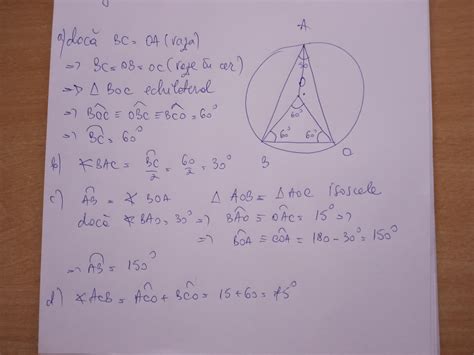 a) dacă BC = OA (raza)
=> BC = OB = OC (raze în cerc)
=> Δ BOC echilateral
=> BOC ≡ OBC ≡ BCO = 60°
=> BC = 60°
b) ∢BAC = BC/2 = 60/2 = 30°
c) AB = ∢ BOA Δ AOB = Δ AOC isoscele
dacă ∢ BAO = 30° => BAO ≡ OAC = 15° =>
=> BOA ≡ COA = 180 - 30° = 150°
=> AB = 150°
d) ∢ ACB = ACO + BCO = 15 + 60 = 75°
A
30
O
60°
60° 60°
B